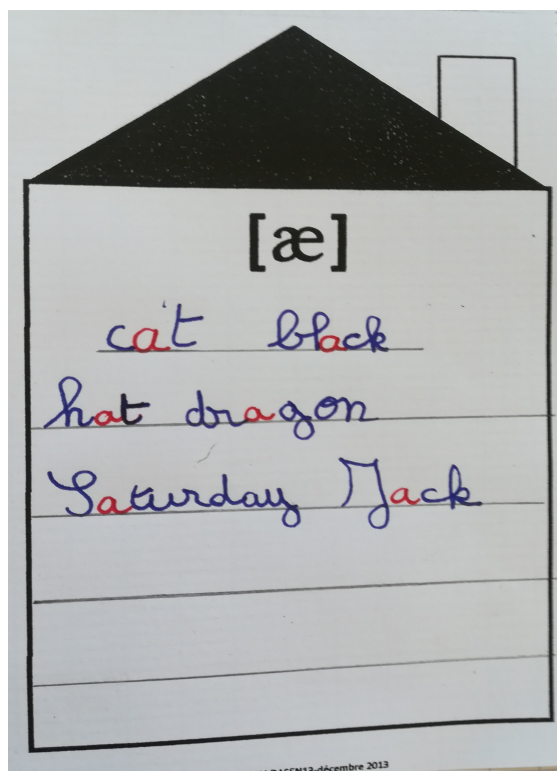 [æ]
cat black
hat dragon
Saturday Jack
13-décembre 2013